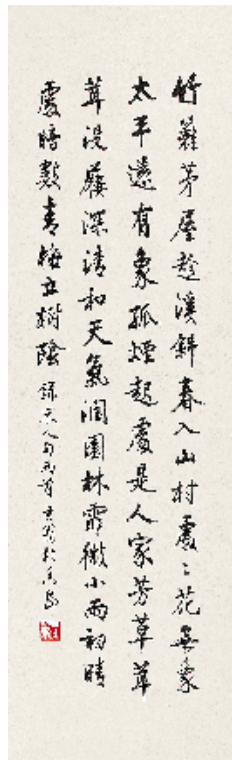 竹籬茅屋趁溪斜春入山村處〻花無象
太平還有象孤煙起處是人家芳草茸
茸沒屨深清和天氣潤園林霏微小雨初晴
處暗數青梅立樹陰 錄元人句兩首